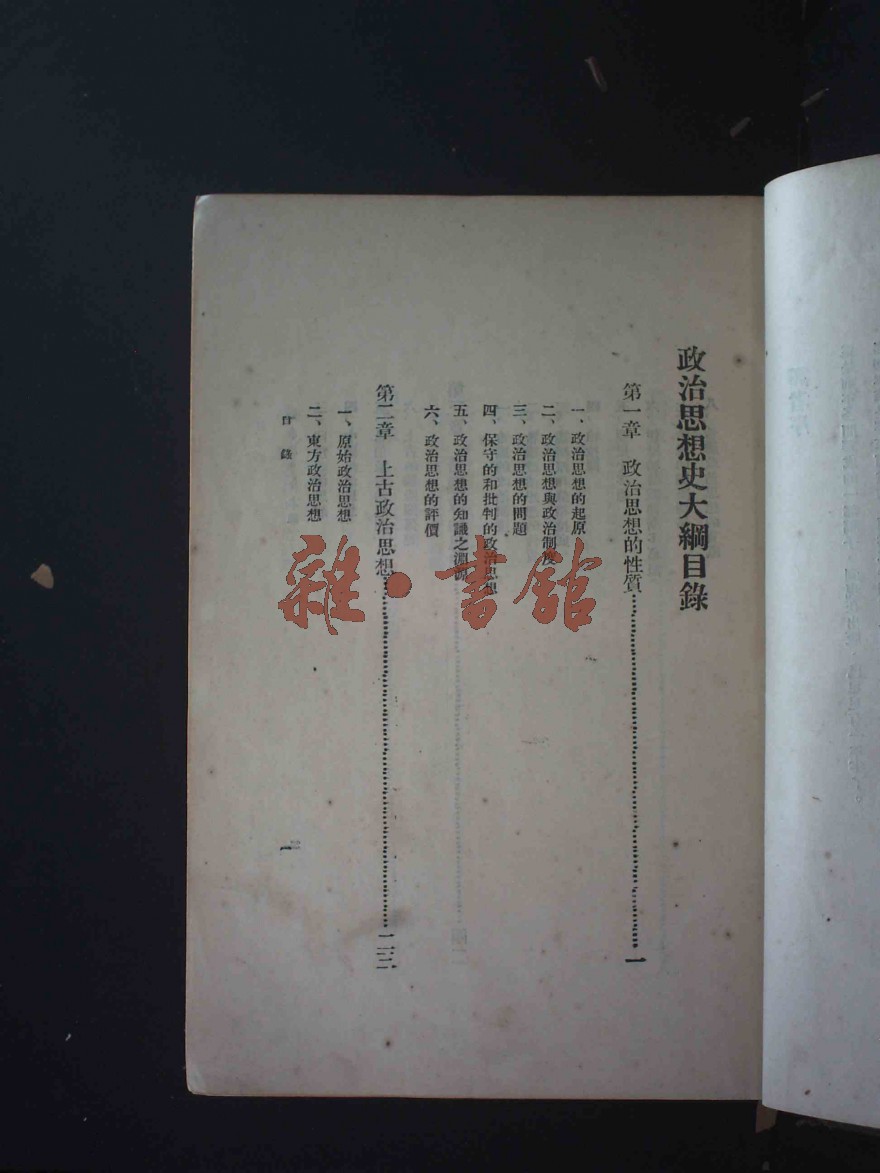 政治思想史大綱目錄
第一章 政治思想的性質……一
一、政治思想的起原
二、政治思想與政治制度
三、政治思想的問題
四、保守的和批判的政治思想
五、政治思想的知識之淵源
六、政治思想的評價
第二章 上古政治思想……二三
一、原始政治思想
二、東方政治思想
目錄
一
雜·書館